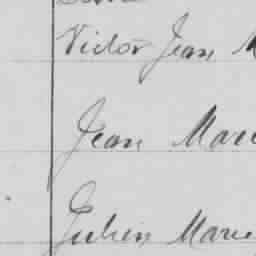 Victor Jean M
Jean Marie
Julien Marie